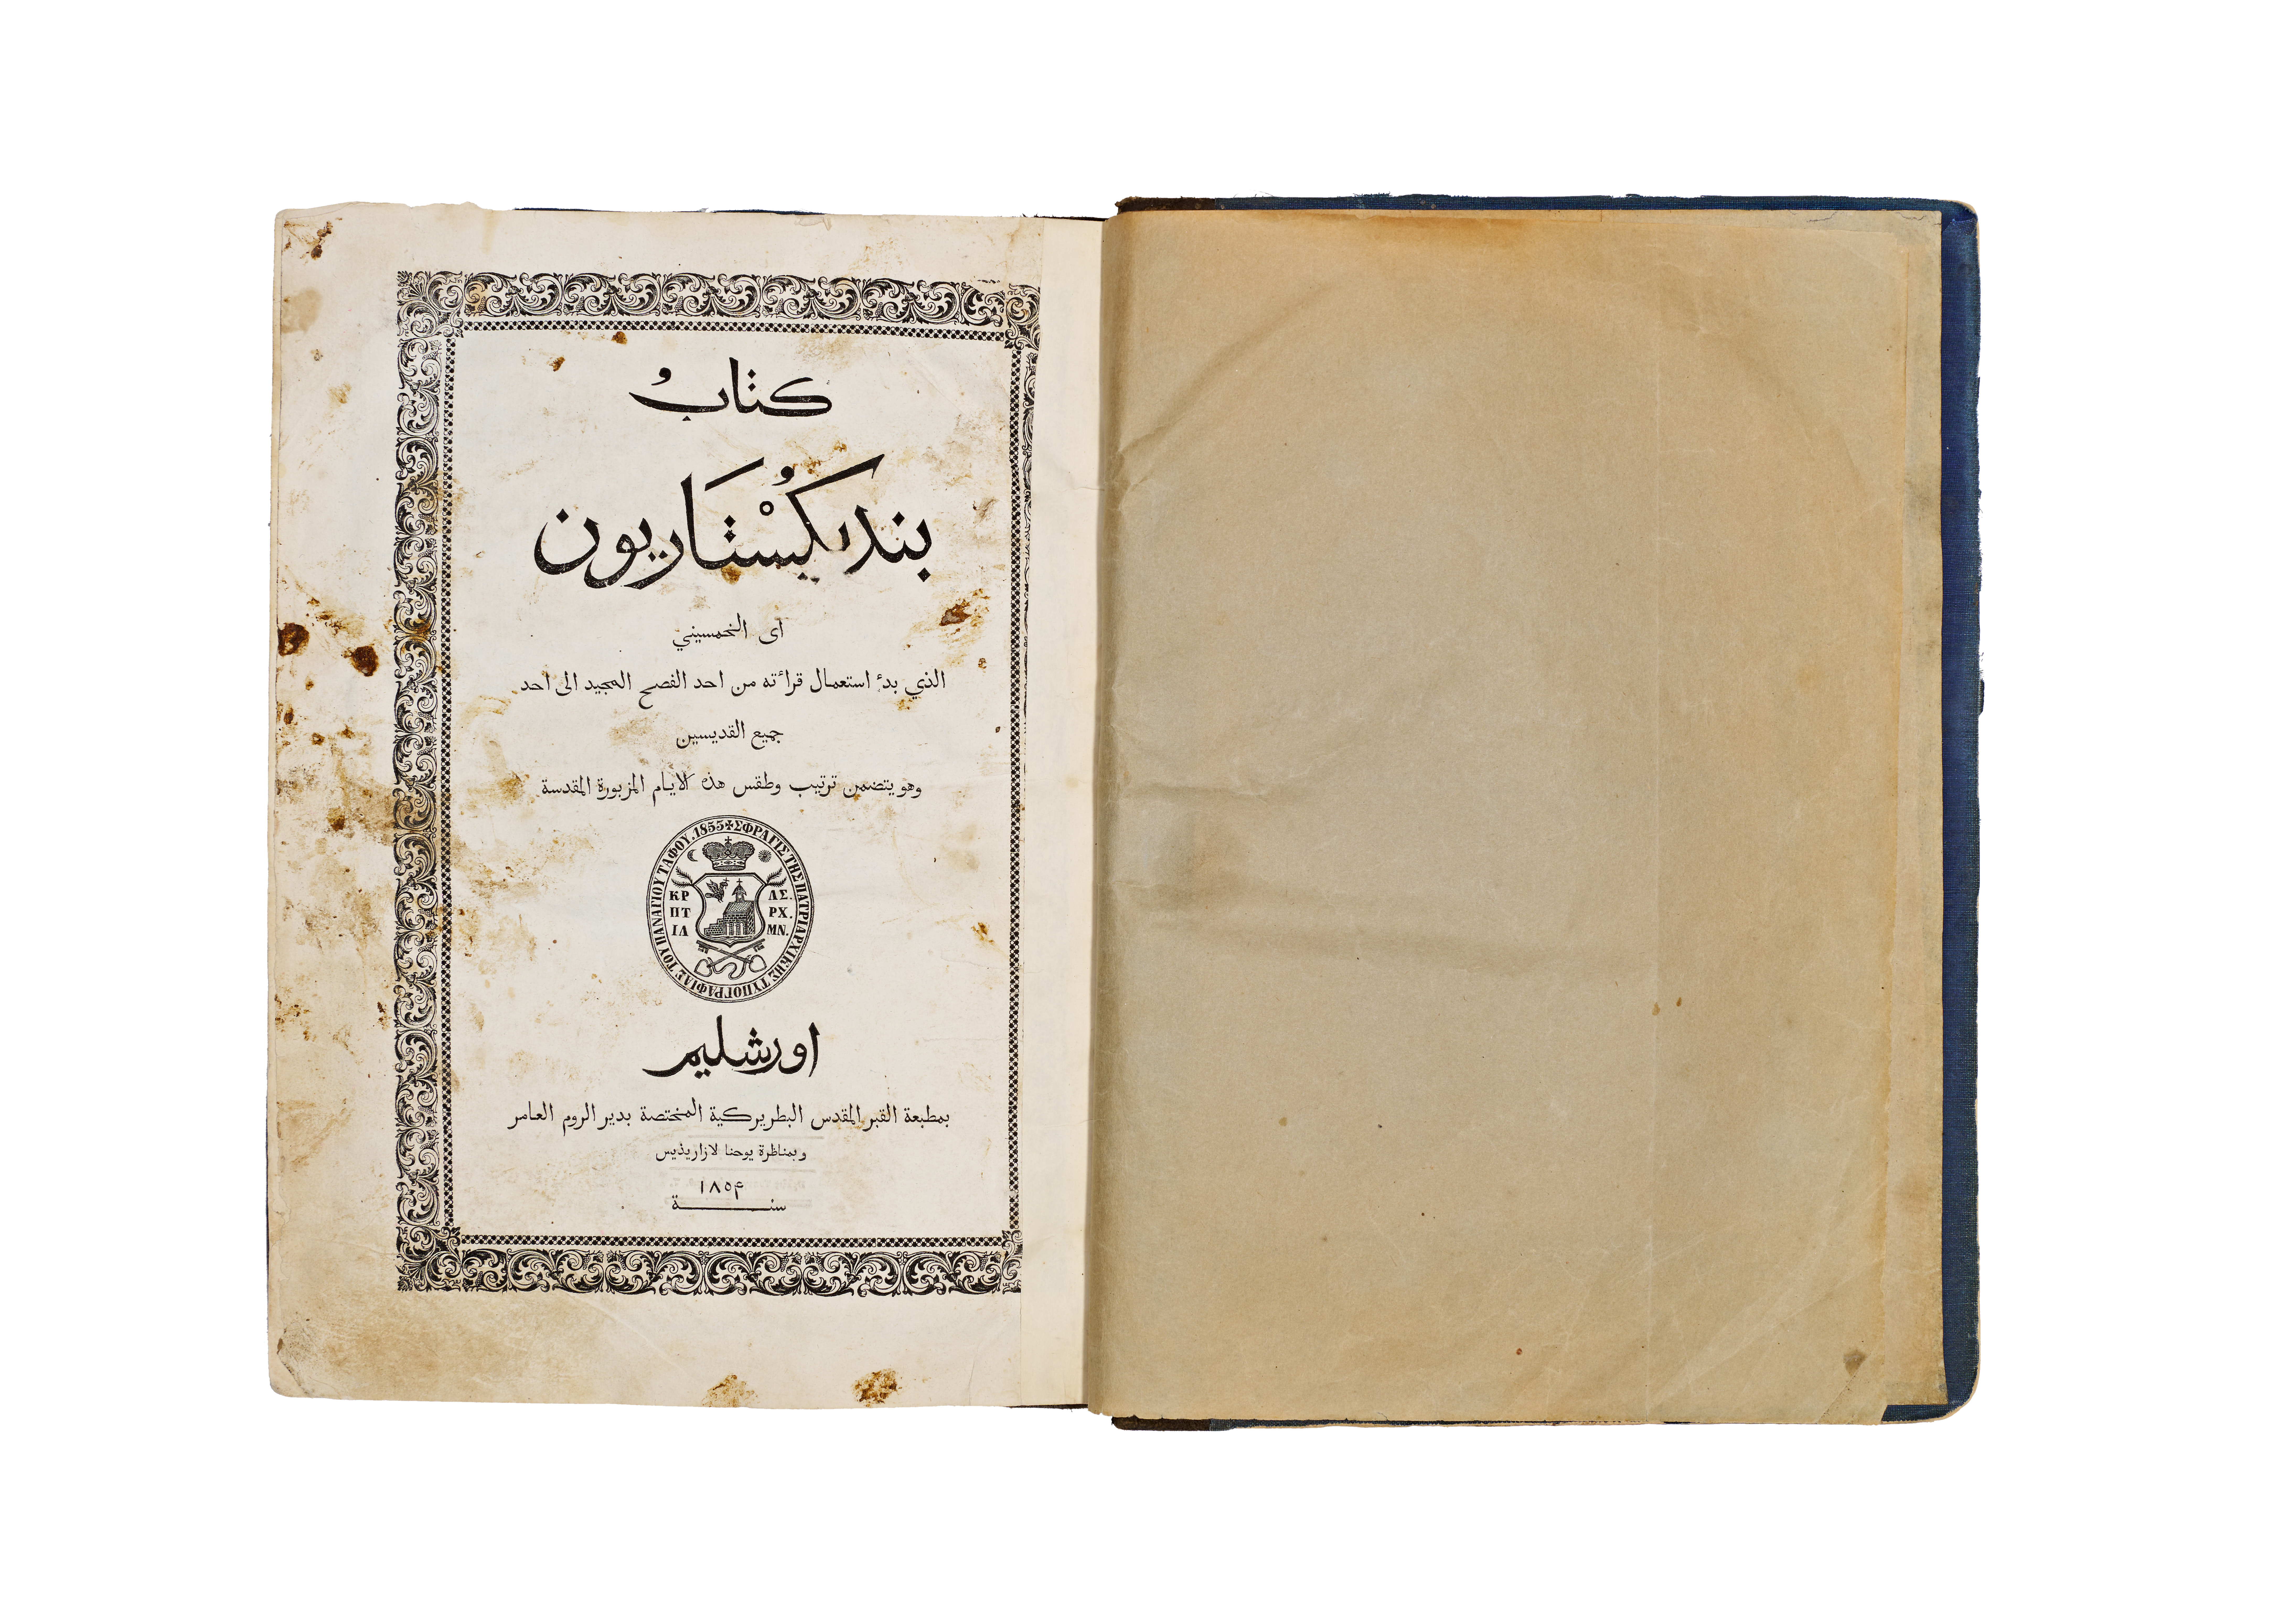 كتابُ
بنديكُسْتَاريون
اى الخمسيني
الذي بدء استعمال قراءته من احد الفصح المجيد الى احد
جميع القديسين
وهو يتضمن ترتيب وطقس هذه الايام المزبورة المقدسة
1853 ✠ ΣΦΡΑΓΙΣ ΤΗΣ ΠΑΤΡΙΑΡΧΙΚΗΣ ΤΥΠΟΓΡΑΦΙΑΣ ΤΟΥ ΠΑΝΑΓΙΟΥ ΤΑΦΟΥ.
ΚΡ ΛΣ.
ΠΤ ΡΧ.
ΙΛ ΜΝ.
اورشليم
بمطبعة القبر المقدس البطريركية المختصة بدير الروم العامر
وبمناظرة يوحنا لازاريذيس
١٨٥۴
سنة